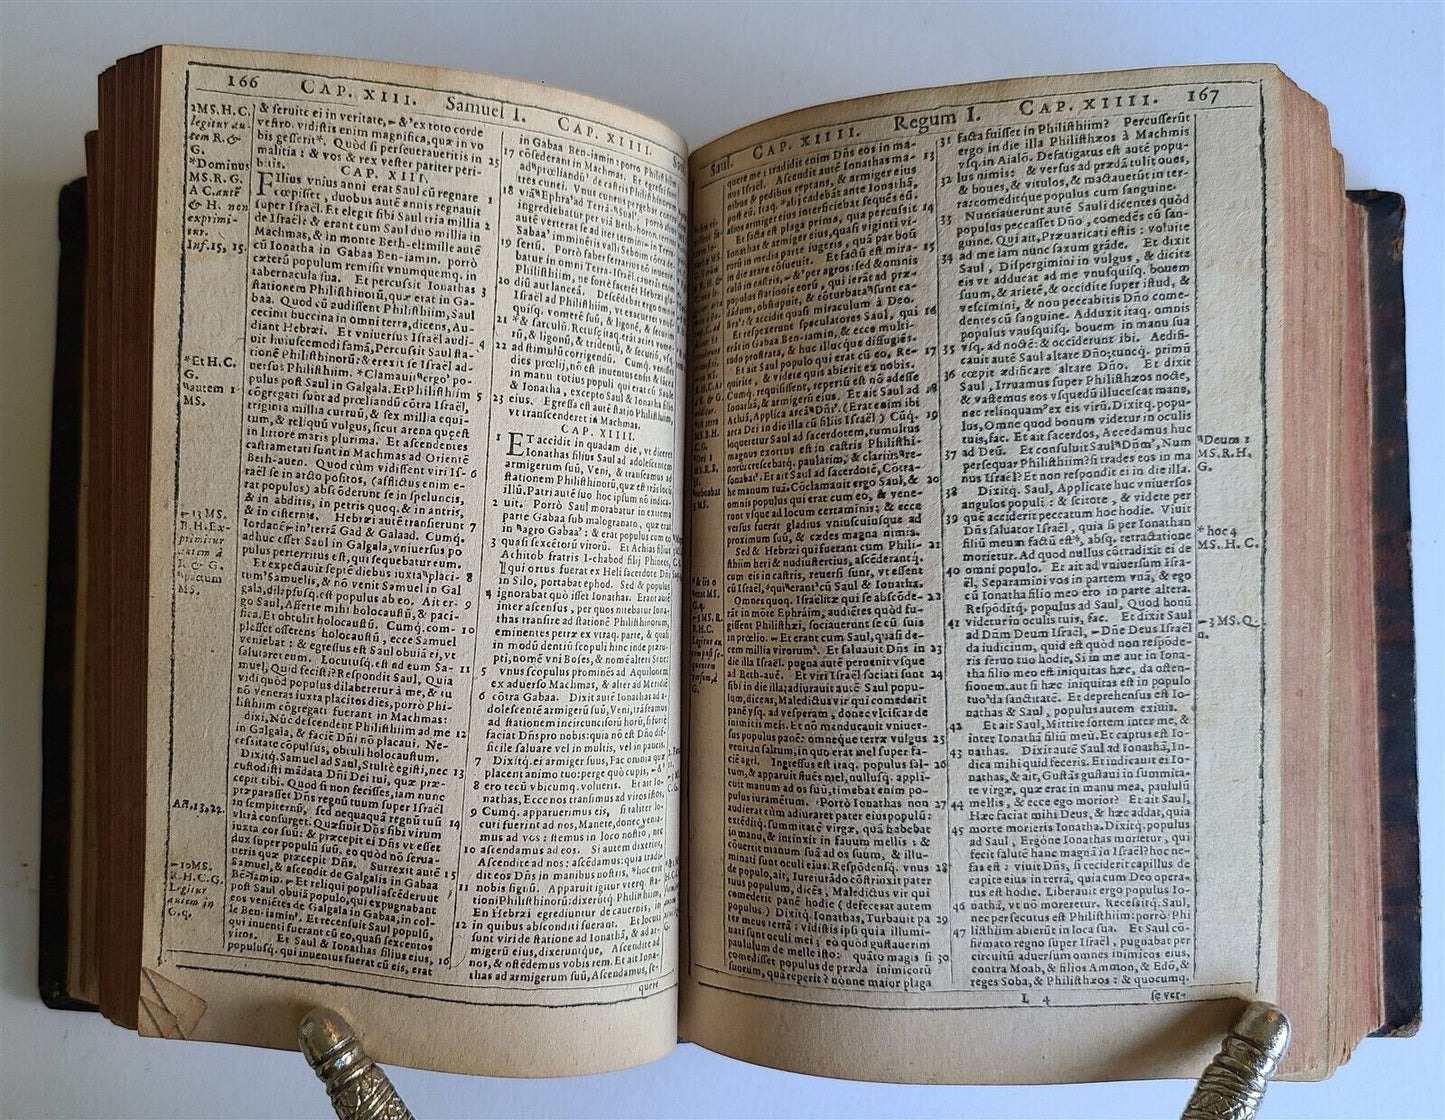 166 CAP. XIII. Samuel I. CAP. XIIII.
2MS.H.C.
legitur au-
tem R.&
G.
*Dominus
MS.R.G.
A C.autē
& H. non
exprimi-
tur.
Inf.15, 15.
*Et H.C.
G.
"autem 1
MS.
←13 MS.
B.H.Ex-
primitur
autem à
R & G.
MS.
Aɛ̃t,13,22.
←10MS.
R.H.C.G.
Legitur
autem in
C.q.
& seruite ei in veritate, ←&'ex toto corde
vestro. vidistis enim magnifica, quæ in vo
bis gesserit*. Quòd si perseueraueritis in 25
malitia: & vos & rex vester pariter peri-
bitis.
CAP. XIII.
FIlius vnius anni erat Saul cũ regnare 1
cœpisset, duobus autē annis regnauit
super Israēl. Et elegit sibi Saul tria millia 2
de Israēl: & erant cum Saul duo millia in
Machmas, & in monte Beth-el: mille autē
cũ Ionatha in Gabaa Ben-iamin. porrò
cæterũ populum remisit vnumquemq. in
tabernacula sua. Et percussit Ionathas 3
stationem Philisthinorũ, quæ erat in Ga-
baa. Quod cũ audissent Philisthiim, Saul
cecinit buccina in omni terra, dicens, Au-
diant Hebræi. Et vniuersus Israēl audi- 4
uit huiuscemodi famã, Percussit Saul sta-
tionē Philisthinorũ: & erexit se Israēl ad-
uersus Philisthiim. *Clamauit"ergo' po-
pulus post Saul in Galgala. Et Philisthiim 5
cōgregati sunt ad prœliandũ cōtra Israēl,
triginta millia curruũ, & sex millia equi-
tum, & reliquũ vulgus, sicut arena quæ est
in littore maris plurima. Et ascendentes
castrametati sunt in Machmas ad Orientē
Beth-auen. Quod cùm vidissent viri Is- 6
raēl se in arcto positos, (afflictus enim e-
rat populus) absōderunt se in speluncis,
& in abditis, in petris quoq. & in antris,
& in cisternis. Hebræi autē transierunt 7
Iordanē ←in'terrã Gad & Galaad. Cumq.
adhuc esset Saul in Galgala, vniuersus po
pulus perterritus est, qui sequebatur eum.
Et expectauit septē diebus iuxta"placi- 8
tum'Samuelis, & nō venit Samuel in Gal
gala, dilapsusq. est populus ab eo. Ait er- 9
go Saul, Afferte mihi holocaustũ, & paci-
fica. Et obtulit holocaustũ. Cumq. com- 10
plesset offerens holocaustũ, ecce Samuel
veniebat: & egressus est Saul obuiã ei, vt
salutaret eum. Locutusq. est ad eum Sa- 11
muel, Quid fecisti? Respondit Saul, Quia
vidi quòd populus dilaberetur à me, & tu
nō veneras iuxta placitos dies, porrò Phi-
listhiim cōgregati fuerant in Machmas:
dixi, Nũc descendent Philisthiim ad me 12
in Galgala, & faciē Dñi nō placaui. Ne-
cessitate cōpulsus, obtuli holocaustum.
Dixitq. Samuel ad Saul, Stultè egisti, nec 13
custodisti mãdata Dñi Dei tui, quæ præ-
cepit tibi. Quod si non fecisses, iam nunc
præparasset Dñs regnũ tuum super Israēl
in sempiternũ, sed nequaquã regnũ tuũ 14
vltrà consurget. Quæsiuit Dñs sibi virum
iuxta cor suũ: & præcepit ei Dñs vt esset
dux super populũ suũ, eo quòd nō serua-
ueris quæ præcepit Dñs. Surrexit autē 15
Samuel, & ascendit de Galgalis in Gabaa
Ben-iamin. ←Et reliqui populi ascēderunt
post Saul obuiã populo, qui expugnabant
eos veniētes de Galgala in Gabaa, in col-
le Ben-iamin'. Et recensuit Saul populũ,
qui inuenti fuerant cũ eo, quasi sexcentos
viros. Et Saul & Ionathas filius eius, 16
populusq. qui inuentus fuerat cũ eis, erat
in Gabaa Ben-iamin: porro Philisthiim
17 cōsederant in Machmas. Et egressi sunt
ad"prœliandũ' de castris Philisthinorũ
tres cunei. Vnus cuneus pergebat contra
18 viã"Ephra'ad Terrã"Sual'. porrò alius
ingrediebatur per viã Beth-horon, tertius
autē verterat se ad iter termini in Terra
Sabaa' imminētis valli Seboim cōtra de-
19 sertũ. Porrò faber ferrarius nō inuenie-
batur in omni Terra-Israēl. cauerant enim
Philisthiim, ne fortè facerēt Hebræi gla-
20 diũ aut lanceã. Descēdebat ergo omnis
Israēl ad Philisthiim, vt exacueret vnus-
quisq. vomerē suũ, & ligonē, & securim,
21 *& sarculũ. Retusę itaq. erãt acies vome-
rũ, & ligonũ, & tridentũ, & securiũ, vsq.
22 ad stimulũ corrigendũ. Cumq. venisset
dies prœlij, nō est inuentus ensis & lãcea
in manu totius populi qui erat cũ Saule
& Ionatha, excepto Saul & Ionatha filio
23 eius. Egressa est autē statio Philisthiim,
vt transcenderet in Machmas.
CAP. XIIII.
1 ET accidit in quadam die, vt diceret
Ionathas filius Saul ad adolescentem
armigerum suũ, Veni, & transeamus ad
stationem Philisthinorũ, quæ est trãs locũ
illũ. Patri autē suo hoc ipsum nō indica-
2 uit. Porrò Saul morabatur in extrema
parte Gabaa sub malogranato, quæ erat
in "agro Gabaa': & erat populus cum eo
3 quasi sexcētorũ virorũ. Et Achias filius
Achitob fratris I-chabod filij Phinees,
qui ortus fuerat ex Heli sacerdote Dñi
in Silo, portabat ephod. Sed & populus
4 ignorabat quò isset Ionathas. Erant autē
inter ascensus, per quos nitebatur Iona-
thas transire ad stationem Philisthinorum,
eminentes petræ ex vtraq. parte, & quasi
in modũ dentiũ scopuli hinc inde præru-
pti, nomē vni Boses, & nomē alteri Sene:
5 vnus scopulus prominēs ad Aquilonem
ex aduerso Machmas, & alter ad Meridiē
6 cōtra Gabaa. Dixit autē Ionathas ad a-
dolescentē armigerũ suũ, Veni, trãseamus
ad stationem incircunsorũ horũ, si fortè
faciat Dñs pro nobis: quia nō est Dño dif-
ficile saluare vel in multis, vel in paucis.
7 Dixitq. ei armiger suus, Fac omnia quæ
placent animo tuo: perge quò cupis, ←&
8 ero tecũ vbicumq. volueris. Et ait Io-
nathas, Ecce nos transimus ad viros istos,
9 Cumq. apparuerimus eis, si taliter lo-
cuti fuerint ad nos, Manete, donec venia-
mus ad vos: stemus in loco nostro, nec
10 ascendamus ad eos. Si autem dixerint,
Ascendite ad nos: ascēdamus: quia tradi-
dit eos Dñs in manibus nostris, *hoc erit
11 nobis signũ. Apparuit igitur vterq. sta-
tioni Philisthinorũ: dixerũtq. Philisthiim,
En Hebræi egrediuntur de cauernis, in
12 in quibus absconditi fuerant. Et locuti
sunt viri de statione ad Ionathã, & ad ar-
migerũ eius, dixeruntque, Ascendite ad
nos, & ostēdemus vobis rem. Et ait Iona-
thas ad armigerum suũ, Ascendamus, se-
quere
Saul. CAP. XIIII. Regum I. CAP. XIIII. 167
quere me: tradidit enim Dñs eos in ma-
nus Israēl. Ascendit autē Ionathas ma- 13
nibus & pedibus reptans, & armiger eius
post eũ. itaq. *alij cadebãt ante Ionathã,
alios armiger eius interficiebat sequēs eũ.
Et facta est plaga prima, qua percussit 14
Ionathas & armiger eius, quasi viginti vi-
rorũ in media parte iugeris, quã par boũ
in die arare cōsueuit. Et factũ est mira- 15
culũ in castris, ←&'per agros: sed & omnis
populus stationis eorũ, qui ierãt ad præ-
dãdum, obstupuit, & cōturbata"sunt ca-
stra': & accidit quasi miraculum à Deo.
Et respexerunt speculatores Saul, qui 16
erãt in Gabaa Ben-iamin, & ecce multi-
tudo prostrata, & huc illucque diffugiēs.
Et ait Saul populo qui erat cũ eo, Re- 17
quirite, & videte quis abierit ex nobis.
Cumq. requisissent, repertũ est nō adesse
Ionathã, & armigerũ eius. Et ait Saul ad 18
Achiã, Applica arcã"Dñi'. (Erat enim ibi
arca Dei in die illa cũ filiis Israēl.) Cũq. 19
loqueretur Saul ad sacerdotem, tumultus
magnus exortus est in castris Philisthi-
norũ: crescebatq. paulatim, & clarius"re-
sonabat'. Et ait Saul ad sacerdotē, Cōtra-
he manum tuã. Cōclamauit ergo Saul, & 20
omnis populus qui erat cum eo, & vene-
runt vsque ad locum certaminis: & ecce
versus fuerat gladius vniuscuiusque ad
proximum suũ, & cædes magna nimis.
Sed & Hebræi qui fuerant cum Phili- 21
sthiim heri & nudiustertius, ascēderantq.
cum eis in castris, reuersi sunt, vt essent
cũ Israēl, "qui'erant'cũ Saul & Ionatha.
Omnes quoq. Israēlitæ qui se abscōde- 22
rãt in mōte Ephraim, audiētes quòd fu-
gissent Philisthæi, sociauerunt se cũ suis
in prœlio. ←Et erant cum Saul, quasi de-
cem millia virorum'. Et saluauit Dñs in 23
die illa Israēl. pugna autē peruenit vsque
ad Beth-auē. Et viri Israēl sociati sunt 24
sibi in die illa: adiurauit autē Saul popu-
lum, dicens, Maledictus vir qui comederit
panē vsq. ad vesperam, donec vlciscar de
inimicis meis. Et nō manducauit vniuer-
sus populus panē: omneque terræ vulgus 25
venit in saltum, in quo erat mel super fa-
ciē agri. Ingressus est itaq. populus sal- 26
tum, & apparuit flués mel, nullusq. appli-
cuit manum ad os suũ, timebat enim po-
pulus iuramētum. Porrò Ionathas non 27
audierat cùm adiuraret pater eius populũ:
extēditq. summitatē virgæ, quã habebat
in manu, & intinxit in fauum mellis: &
cōuertit manum suã ad os suum, & illu-
minati sunt oculi eius. Respōdensq. vnus 28
de populo, ait, Iureiurãdo cōstrinxit pater
tuus populum, dicēs, Maledictus vir qui
comederit panē hodie (defecerat autem
populus.) Dixitq. Ionathas, Turbauit pa 29
ter meus terrã: vidistis ipsi quia illumi-
nati sunt oculi mei; eò quòd gustauerim
paululum de melle isto: quãto magis si 30
comedisset populus de præda inimicorũ
suorum, quã reperit? nonne maior plaga
31 facta fuisset in Philisthiim? Percusserũt
ergo in die illa Philisthæos à Machmis
vsq. in Aialō. Defatigatus est autē popu-
32 lus nimis: & versus ad prædã tulit oues,
& boues, & vitulos, & mactauerũt in ter-
ra: comeditque populus cum sanguine.
33 Nuntiauerunt autē Sauli dicentes quòd
populus peccasset Dño, comedēs cũ san-
guine. Qui ait, Præuaricati estis: voluite
34 ad me iam nunc saxum grãde. Et dixit
Saul, Dispergimini in vulgus, & dicite
eis vt adducat ad me vnusquisq. bouem
suum, & arietē, & occidite super istud, &
vescimini, & non peccabitis Dño come-
dentes cũ sanguine. Adduxit itaq. omnis
populus vnusquisq. bouem in manu sua
35 vsq. ad noctē: & occiderunt ibi. Aedifi-
cauit autē Saul altare Dño; tuncq. primũ
36 cœpit ædificare altare Dño. Et dixit
Saul, Irruamus super Philisthæos nocte,
& vastemus eos vsquedũ illucescat mane,
nec relinquam'ex eis virũ. Dixitq. popu-
lus, Omne quod bonum videtur in oculis
tuis, fac. Et ait sacerdos, Accedamus huc
37 ad Deũ. Et consuluit Saul"Dōm', Num
persequar Philisthiim? si trades eos in ma
nus Israēl? Et non respondit ei in die illa.
38 Dixitq. Saul, Applicate huc vniuersos
angulos populi: & scitote, & videte per
39 quē acciderit peccatum hoc hodie. Viuit
Dñs saluator Israēl, quia si per Ionathan
filiũ meum factũ est*, absq. retractatione
morietur. Ad quod nullus cōtradixit ei de
40 omni populo. Et ait ad vniuersum Isra-
ēl, Separamini vos in partem vnã, & ego
cũ Ionatha filio meo ero in parte altera.
Respōditq. populus ad Saul, Quod bonũ
41 videtur in oculis tuis, fac. Et dixit Saul
ad Dñm Deum Israēl, ←Dñe Deus Israēl
da iudicium, quid est quòd non respōde-
ris seruo tuo hodie, Si in me aut in Iona-
tha filio meo est iniquitas hæc, da osten-
sionem. aut si hæc iniquitas est in populo
tuo'da sanctitatē. Et deprehensus est Io-
nathas & Saul, populus autem exiuit.
42 Et ait Saul, Mittite sortem inter me, &
inter Ionathã filiũ meũ. Et captus est Io-
43 nathas. Dixit autē Saul ad Ionathã, In-
dica mihi quid feceris. Et indicauit ei Io-
nathas, & ait, Gustãs gustaui in summita-
te virgæ, quæ erat in manu mea, paululũ
44 mellis, & ecce ego morior? Et ait Saul,
Hæc faciat mihi Deus, & hæc addat, quia
45 morte morieris Ionatha. Dixitq. populus
ad Saul, Ergóne Ionathas morietur, qui
fecit salutē hanc magnã in Israēl? hoc ne-
fas est: viuit Dñs, si ceciderit capillus de
capite eius in terrã, quia cum Deo opera-
tus est hodie. Liberauit ergo populus Io-
46 nathã, vt nō moreretur. Recessitq. Saul,
nec persecutus est Philisthiim: porrò Phi
47 listhiim abierũt in loca sua. Et Saul cō-
firmato regno super Israēl, pugnabat per
circuitũ aduersum omnes inimicos eius,
contra Moab, & filios Ammon, & Edō, &
reges Soba, & Philisthæos: & quocumq.
L 4 se ver-
"Deum 1
MS.R.H.
G.
*hoc 4
MS.H.C.
←3 MS.Q.